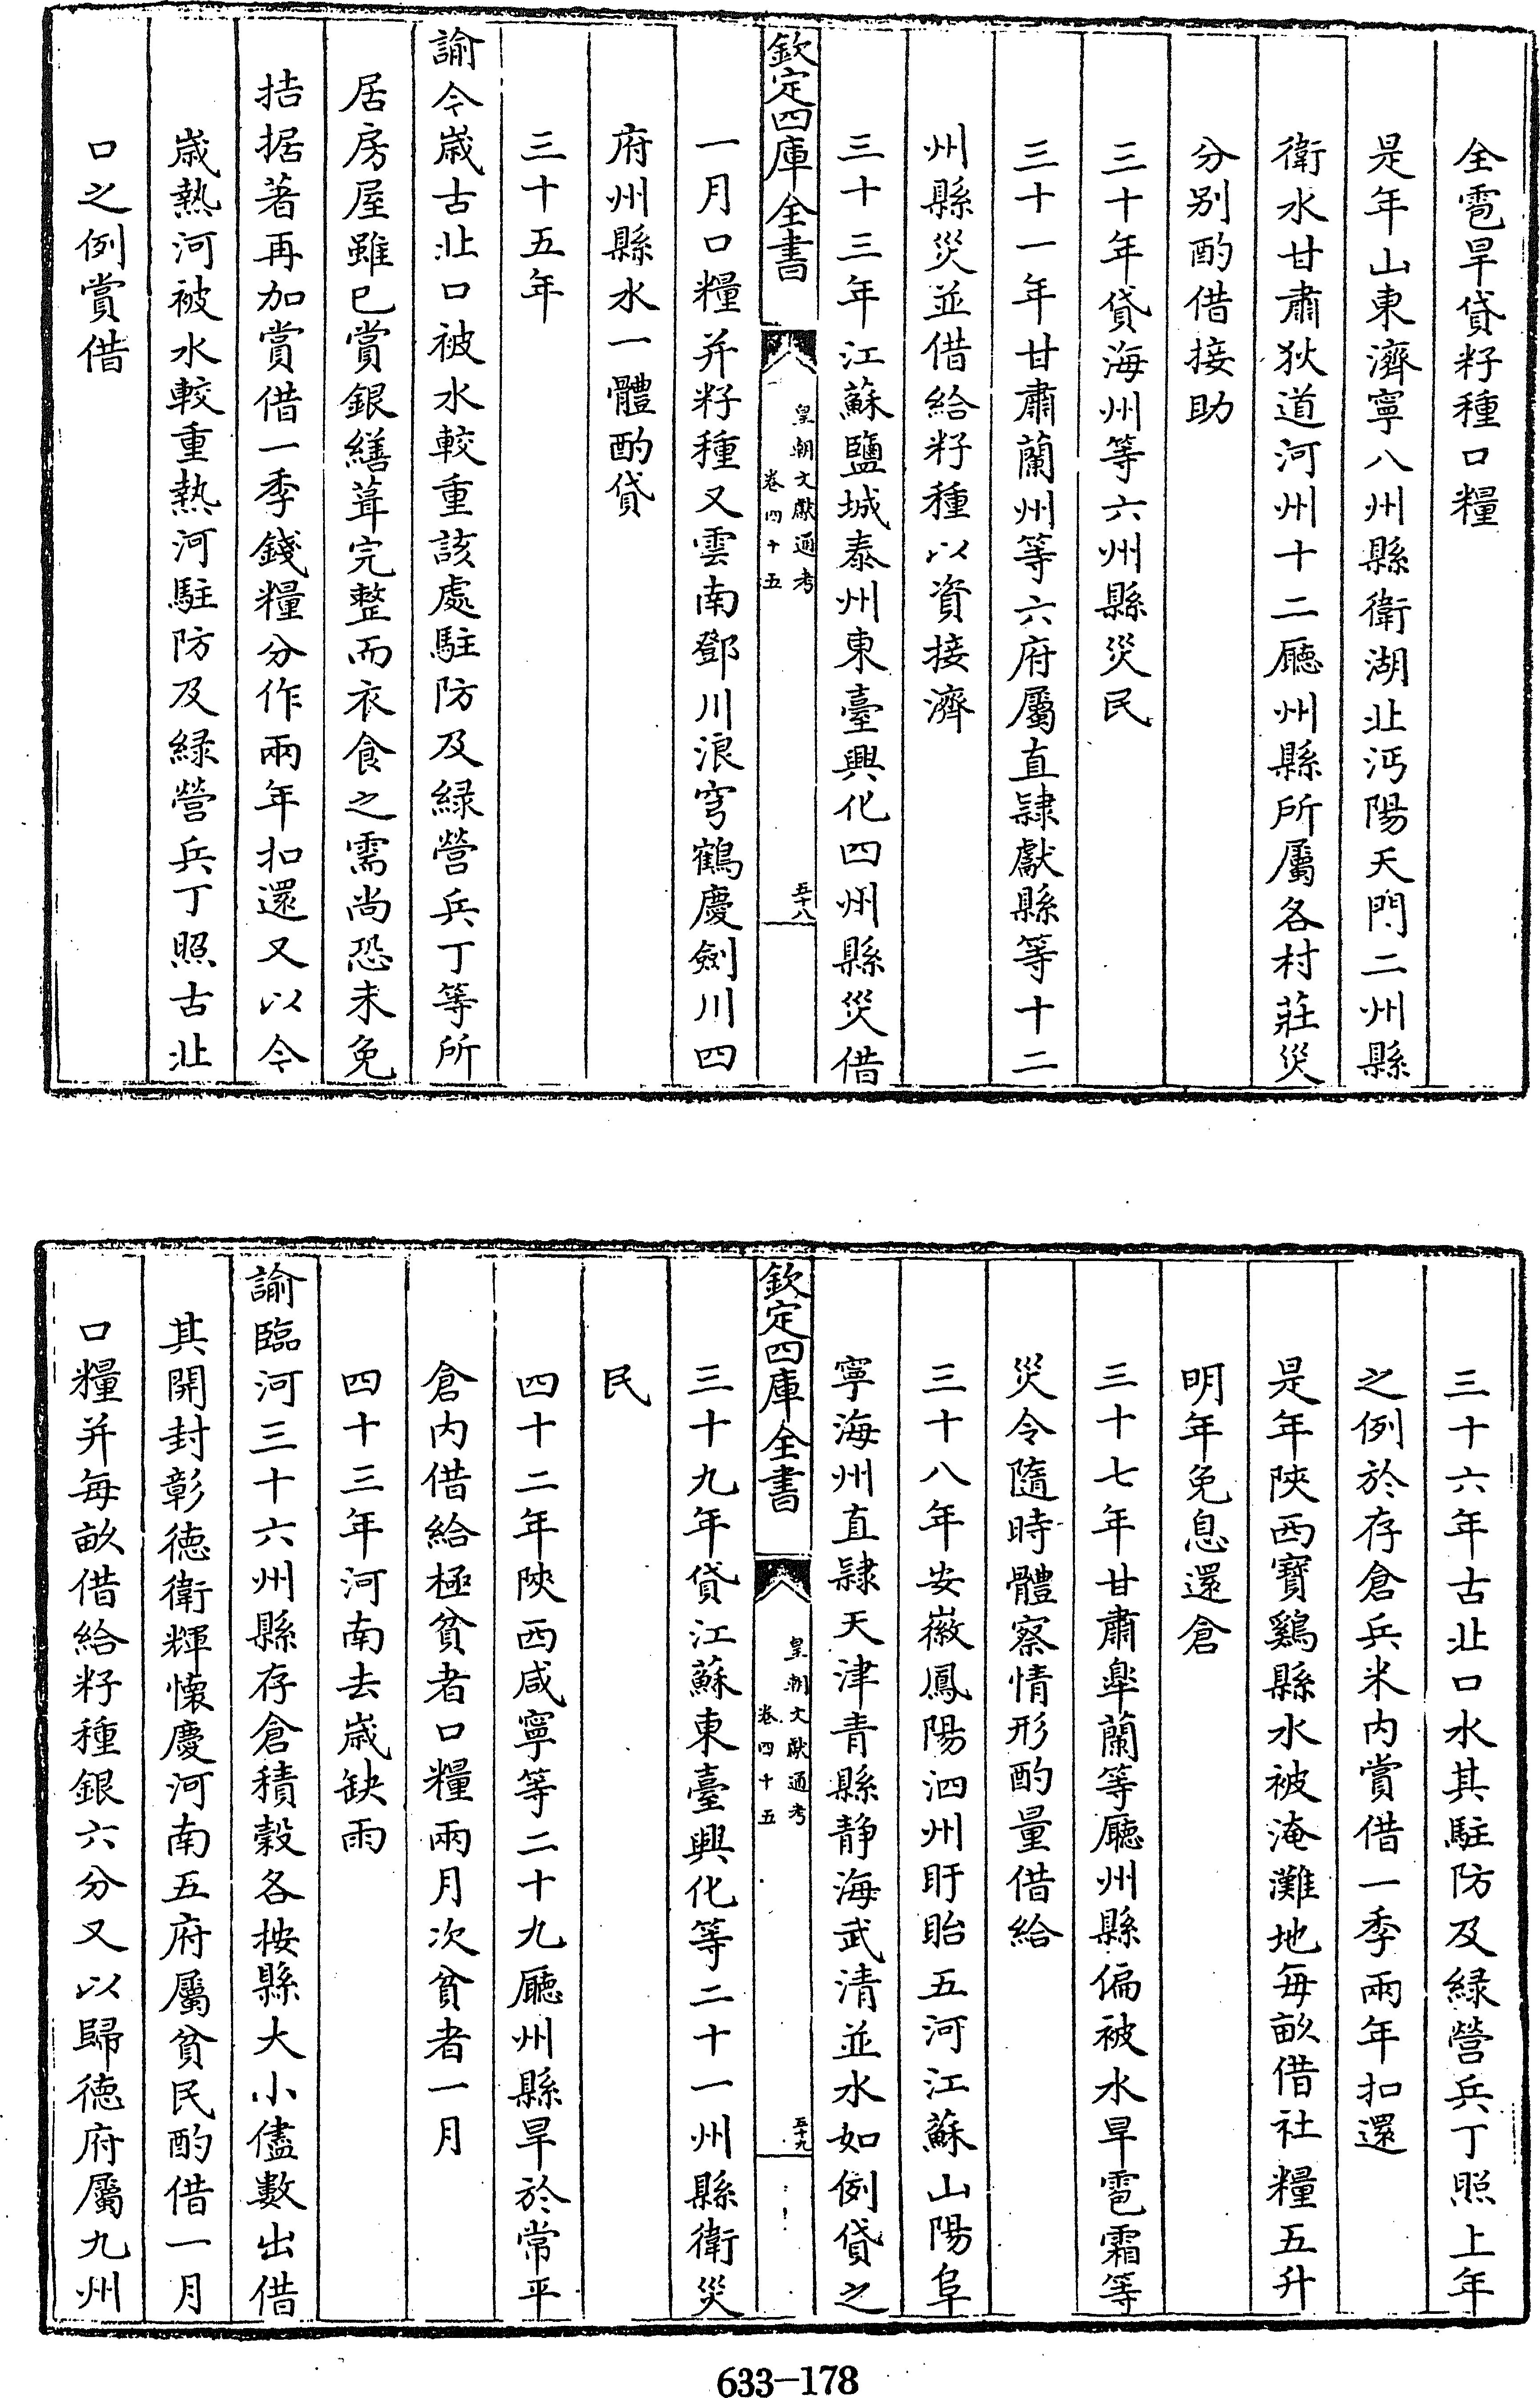 全雹旱貸籽種口糧
是年山東濟寧八州縣衛湖北沔陽天門二州縣
衛水甘肅狄道河州十二廳州縣所屬各村莊災
分别酌借接助
三十年貸海州等六州縣災民
三十一年甘肅蘭州等六府屬直隸獻縣等十二
州縣災並借給籽種以資接濟
三十三年江蘇鹽城泰州東臺興化四州縣災借
欽定四庫全書
皇朝文獻通考
卷四十五
五十八
一月口糧并籽種又雲南鄧川浪穹鶴慶劍川四
府州縣水一體酌貸
三十五年
諭今歲古北口被水較重該處駐防及緑營兵丁等所
居房屋雖已賞銀繕葺完整而衣食之需尚恐未免
拮据著再加賞借一季錢糧分作兩年扣還又以今
歲熱河被水較重熱河駐防及緑營兵丁照古北
口之例賞借
三十六年古北口水其駐防及緑營兵丁照上年
之例於存倉兵米内賞借一季兩年扣還
是年陜西寶鷄縣水被淹灘地每畝借社糧五升
明年免息還倉
三十七年甘肅臯蘭等廳州縣偏被水旱雹霜等
災令隨時體察情形酌量借給
三十八年安徽鳳陽泗州盱眙五河江蘇山陽阜
寧海州直隸天津青縣静海武清並水如例貸之
欽定四庫全書
皇朝文獻通考
卷四十五
五十九
三十九年貸江蘇東臺興化等二十一州縣衛災
民
四十二年陜西咸寧等二十九廳州縣旱於常平
倉内借給極貧者口糧兩月次貧者一月
四十三年河南去歲缺雨
諭臨河三十六州縣存倉積穀各按縣大小儘數出借
其開封彰德衛輝懷慶河南五府屬貧民酌借一月
口糧并每畝借給籽種銀六分又以歸德府屬九州
633-178